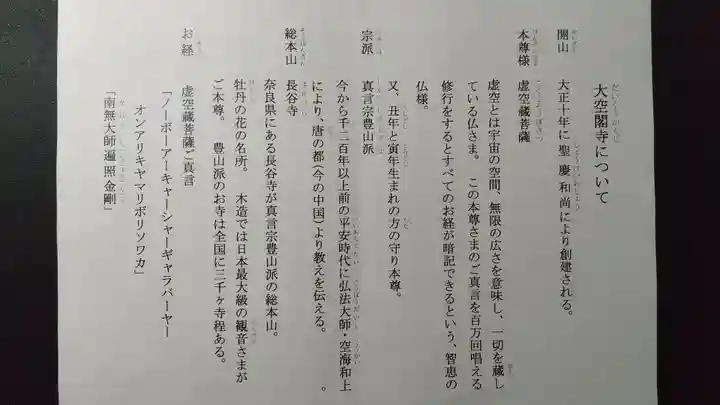 大空閣寺について
開山 大正十年に聖慶和尚により創建される。
本尊様 虚空蔵菩薩
虚空とは宇宙の空間、無限の広さを意味し、一切を蔵し
ている仏さま。 この本尊さまのご真言を百万回唱える
修行をするとすべてのお経が暗記できるという、智恵の
仏様。
又、丑年と寅年生まれの方の守り本尊。
宗派 真言宗豊山派
今から千二百年以上前の平安時代に弘法大師・空海和上
により、唐の都(今の中国)より教えを伝える。 。
総本山 長谷寺
奈良県にある長谷寺が真言宗豊山派の総本山。
牡丹の花の名所。 木造では日本最大級の観音さまが
ご本尊。 豊山派のお寺は全国に三千ヶ寺程ある。
お経 虚空蔵菩薩ご真言
「ノーボーアーキャーシャーギャラバーヤー
オンアリキヤマリボリソワカ」
「南無大師遍照金剛」